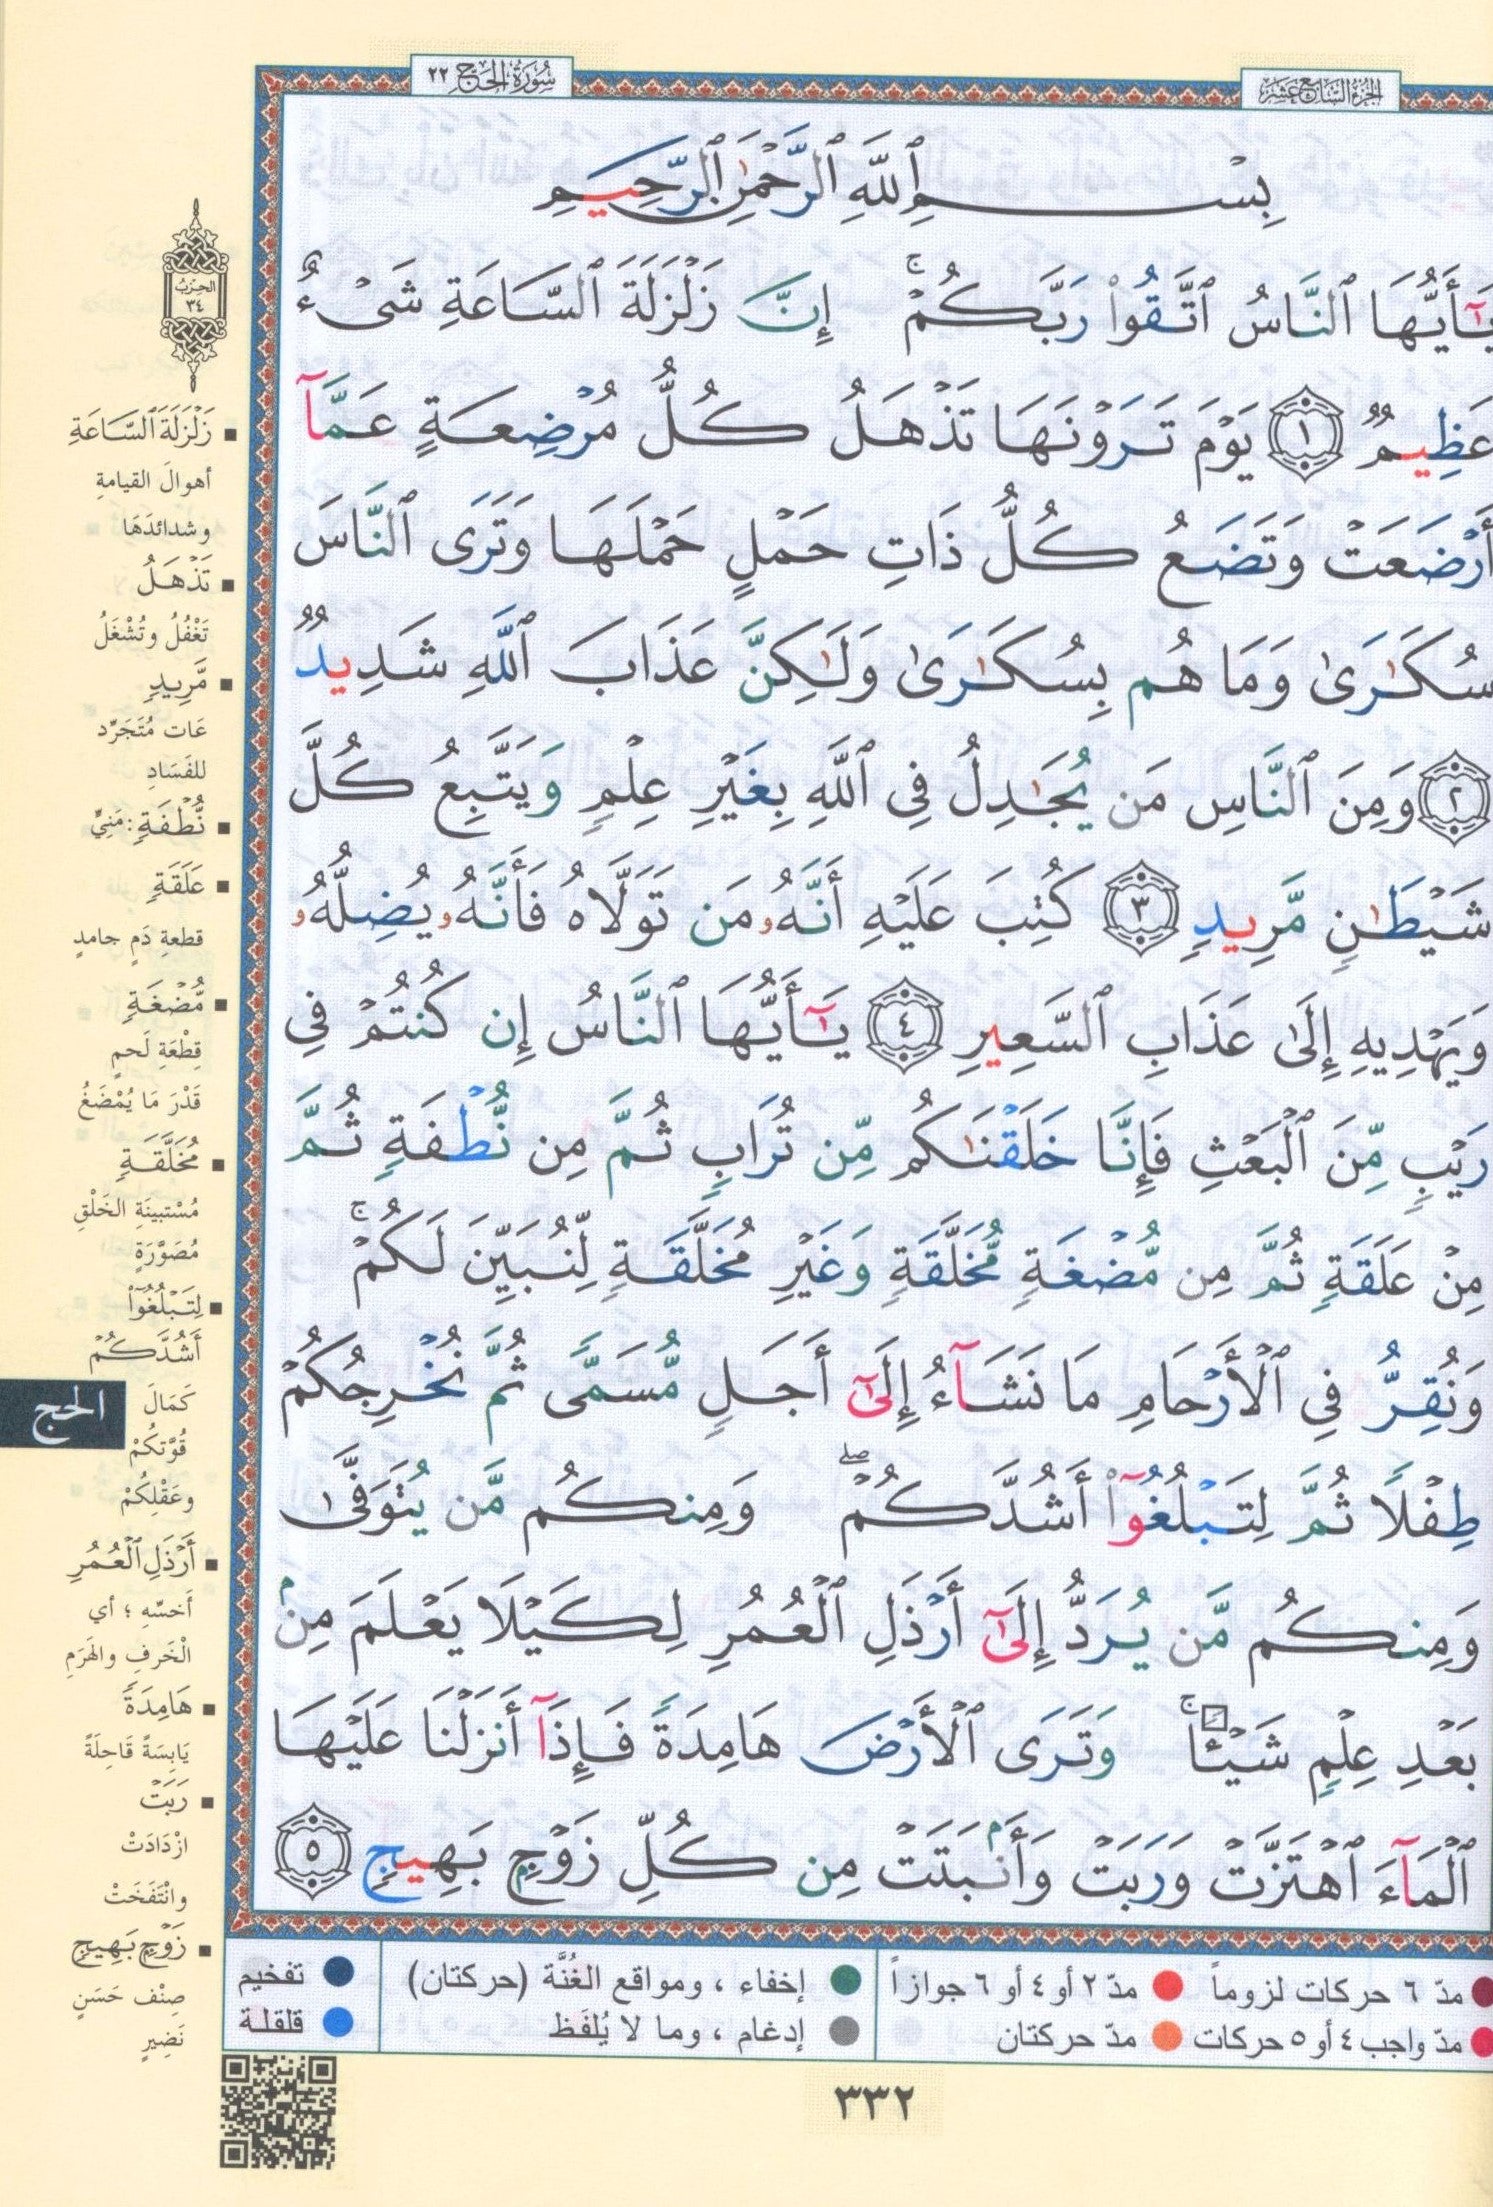 الجزء السابع عشر
سورة الحج ٢٢
بِسْمِ ٱللَّهِ ٱلرَّحْمَٰنِ ٱلرَّحِيمِ
يَٰٓأَيُّهَا ٱلنَّاسُ ٱتَّقُوا۟ رَبَّكُمْ ۚ إِنَّ زَلْزَلَةَ ٱلسَّاعَةِ شَىْءٌ
عَظِيمٌ ١ يَوْمَ تَرَوْنَهَا تَذْهَلُ كُلُّ مُرْضِعَةٍ عَمَّآ
أَرْضَعَتْ وَتَضَعُ كُلُّ ذَاتِ حَمْلٍ حَمْلَهَا وَتَرَى ٱلنَّاسَ
سُكَٰرَىٰ وَمَا هُم بِسُكَٰرَىٰ وَلَٰكِنَّ عَذَابَ ٱللَّهِ شَدِيدٌ
٢ وَمِنَ ٱلنَّاسِ مَن يُجَٰدِلُ فِى ٱللَّهِ بِغَيْرِ عِلْمٍ وَيَتَّبِعُ كُلَّ
شَيْطَٰنٍ مَّرِيدٍ ٣ كُتِبَ عَلَيْهِ أَنَّهُۥ مَن تَوَلَّاهُ فَأَنَّهُۥ يُضِلُّهُۥ
وَيَهْدِيهِ إِلَىٰ عَذَابِ ٱلسَّعِيرِ ٤ يَٰٓأَيُّهَا ٱلنَّاسُ إِن كُنتُمْ فِى
رَيْبٍ مِّنَ ٱلْبَعْثِ فَإِنَّا خَلَقْنَٰكُم مِّن تُرَابٍ ثُمَّ مِن نُّطْفَةٍ ثُمَّ
مِنْ عَلَقَةٍ ثُمَّ مِن مُّضْغَةٍ مُّخَلَّقَةٍ وَغَيْرِ مُخَلَّقَةٍ لِّنُبَيِّنَ لَكُمْ ۚ
وَنُقِرُّ فِى ٱلْأَرْحَامِ مَا نَشَآءُ إِلَىٰٓ أَجَلٍ مُّسَمًّى ثُمَّ نُخْرِجُكُمْ
طِفْلًا ثُمَّ لِتَبْلُغُوٓا۟ أَشُدَّكُمْ ۖ وَمِنكُم مَّن يُتَوَفَّىٰ
وَمِنكُم مَّن يُرَدُّ إِلَىٰٓ أَرْذَلِ ٱلْعُمُرِ لِكَيْلَا يَعْلَمَ مِنۢ
بَعْدِ عِلْمٍ شَيْـًٔا ۚ وَتَرَى ٱلْأَرْضَ هَامِدَةً فَإِذَآ أَنزَلْنَا عَلَيْهَا
ٱلْمَآءَ ٱهْتَزَّتْ وَرَبَتْ وَأَنۢبَتَتْ مِن كُلِّ زَوْجٍۭ بَهِيجٍ ٥
الحزب
٣٤
زَلْزَلَةَ ٱلسَّاعَةِ
أهوالَ القيامةِ
وشدائدَهَا
تَذْهَلُ
تَغْفُلُ وتُشْغَلُ
مَّرِيدٍ
عَات مُتَجَرِّد
للفَسَادِ
نُّطْفَةٍ: مَنِيٍّ
عَلَقَةٍ
قطعةِ دَمٍ جامدٍ
مُّضْغَةٍ
قِطْعَةِ لَحمٍ
قَدْرَ مَا يُمْضَغُ
مُخَلَّقَةٍ
مُسْتبينَةِ الخَلْقِ
مُصَوَّرَةٍ
لِتَبْلُغُوٓا۟
أَشُدَّكُمْ
كَمَالَ
قُوَّتِكُمْ
وعَقْلِكُمْ
أَرْذَلِ ٱلْعُمُرِ
أَخسِّهِ ؛ أي
الْخَرفِ والهَرَمِ
هَامِدَةً
يَابِسَةً قَاحِلَةً
رَبَتْ
ازْدَادَتْ
وانْتَفَخَتْ
زَوْجٍ بَهِيجٍ
صِنْف حَسَنٍ
نَضِيرٍ
الحج
مدّ ٦ حركات لزوماً
مدّ ٢ أو ٤ أو ٦ جوازاً
إخفاء ، ومواقع الغُنَّة (حركتان)
تفخيم
مدّ واجب ٤ أو ٥ حركات
مدّ حركتان
إدغام ، وما لا يُلفَظ
قلقلة
٣٣٢